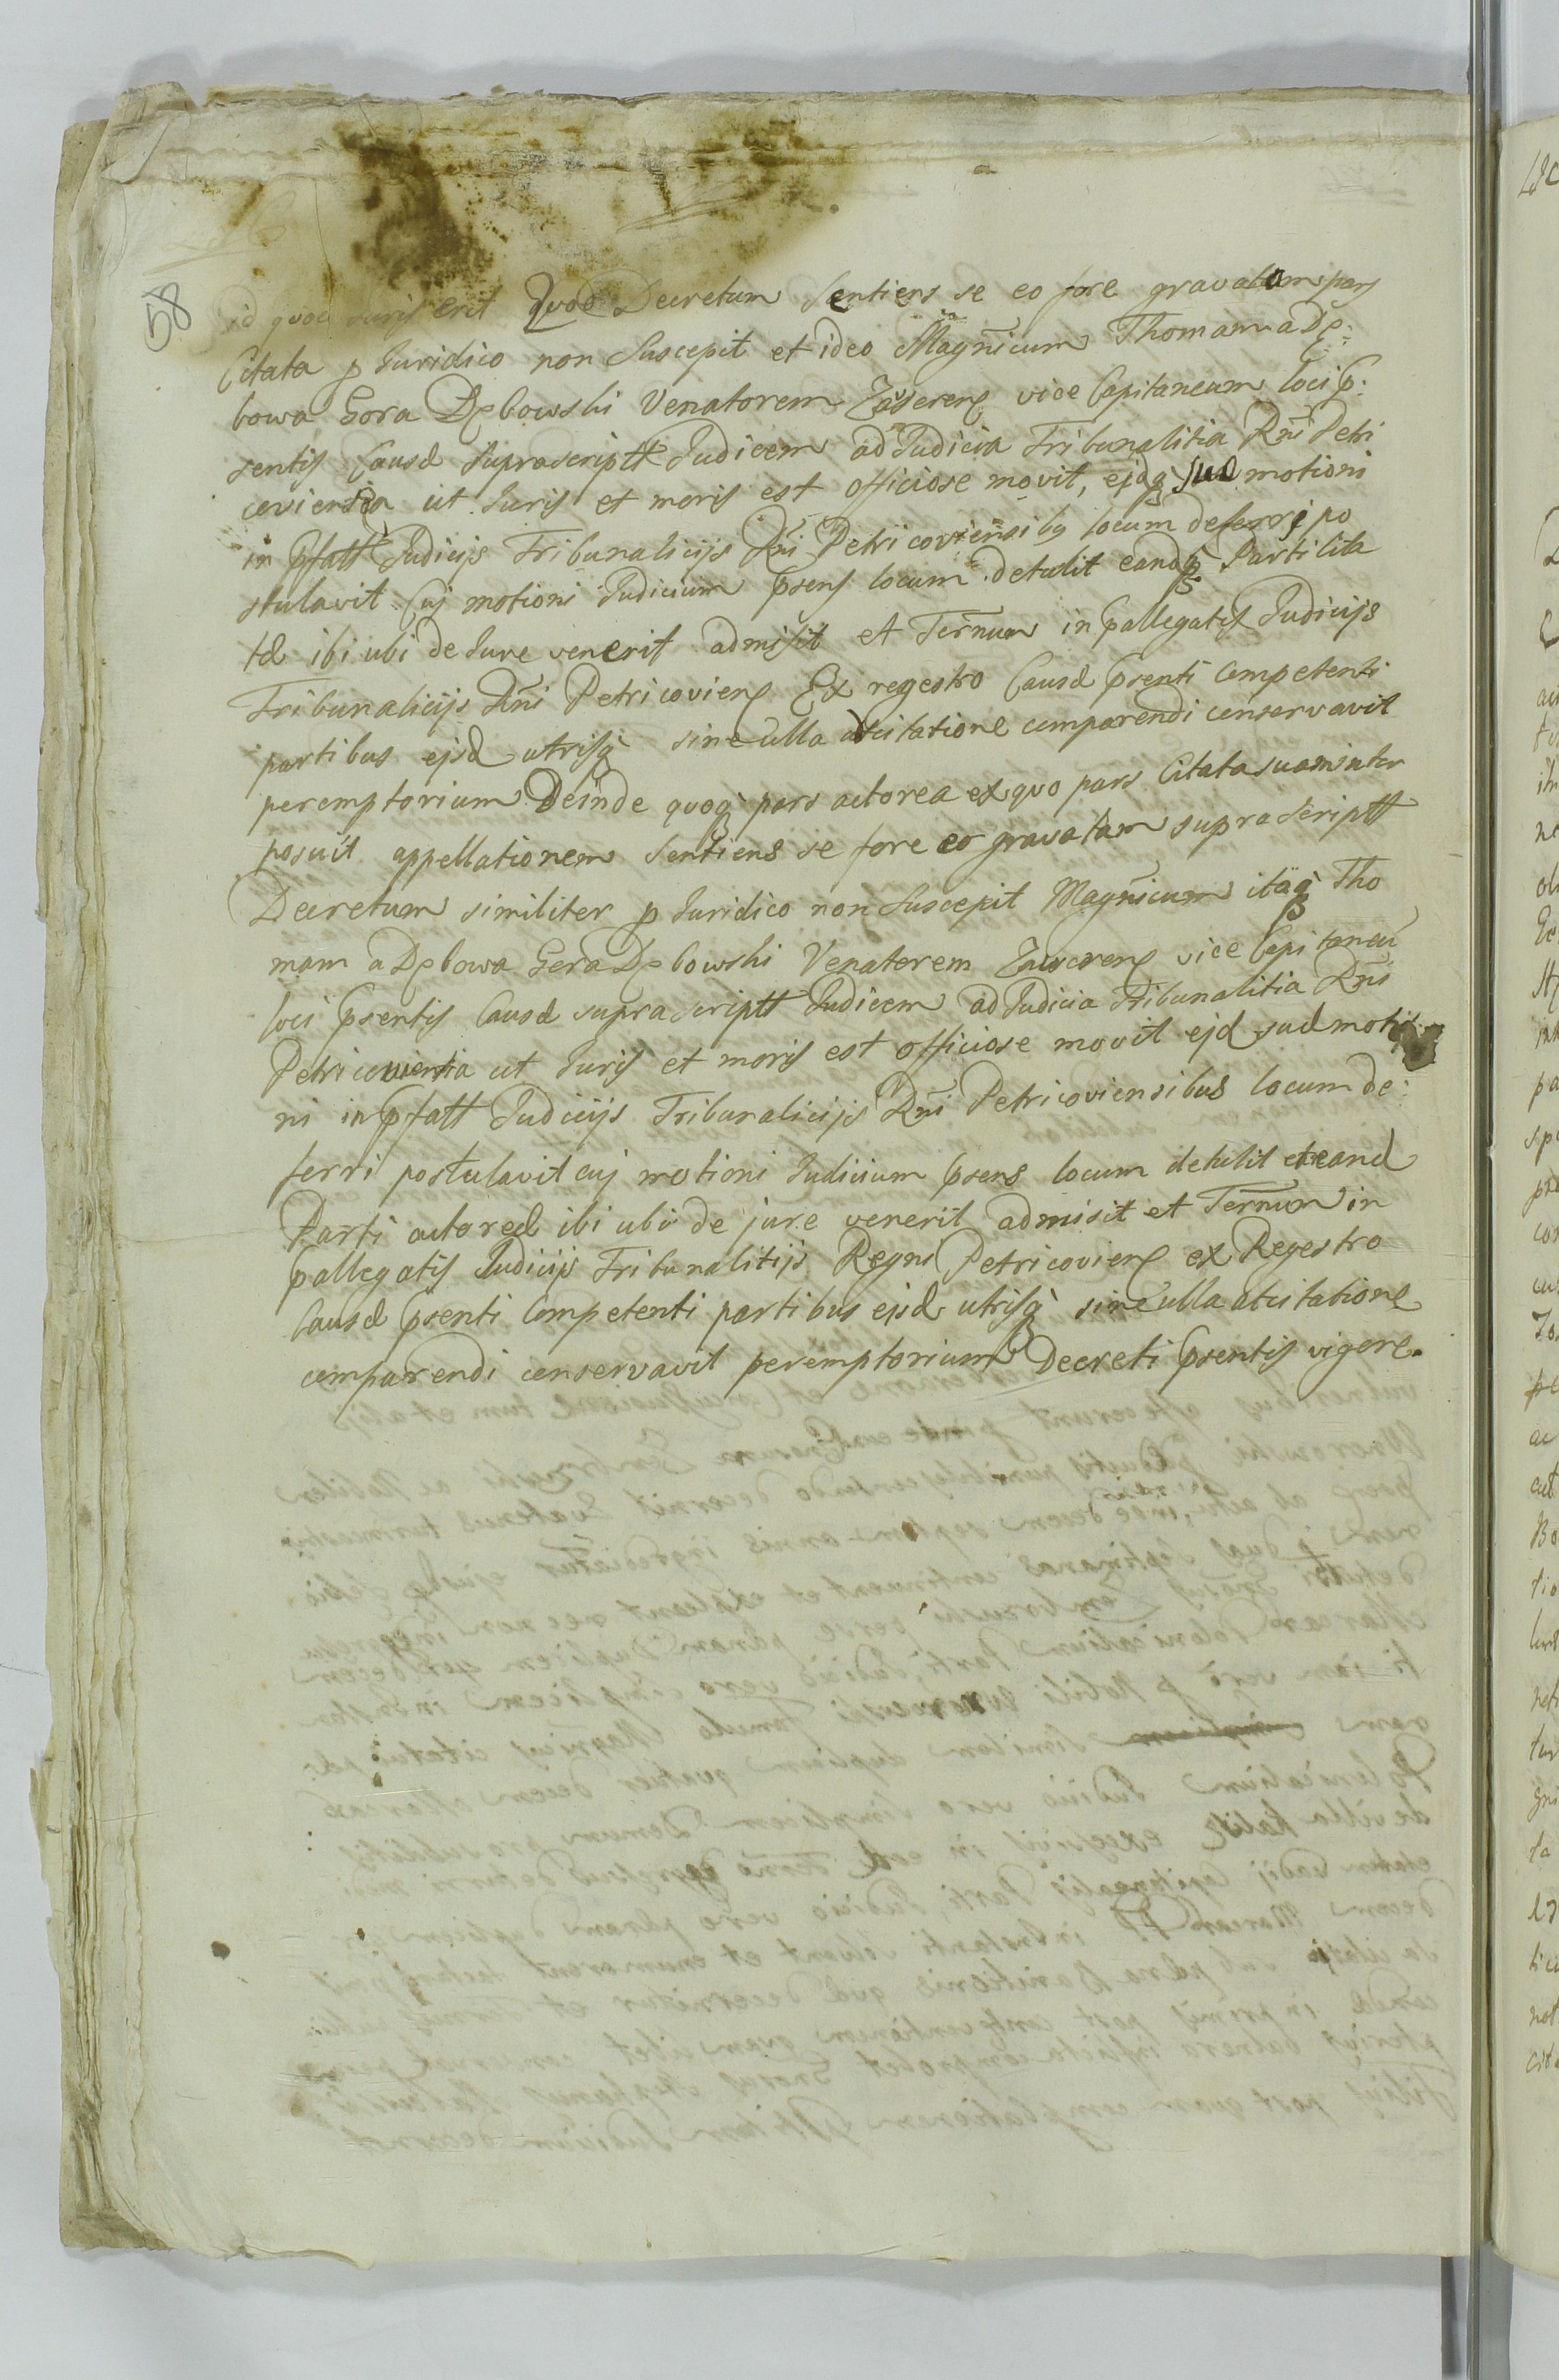 58
id quod juris erit Quod Decretum Sentiens se eo fore gravatam pars
Citata p Juridico non Suscepit et ideo Magnicum Thomam a Dę:
bowa Gora Dębowski Venatorem vice Capitaneum loci p:
sentis Causæ suprascriptt Judicem ad Judicia Tribunalitia Rni Petri
coviensia ut Juris et moris est officiose movit, ejdq suæ motioni
in pfatt Judicijs Tribunalicijs Rni Petricoviensibq locum deferri po
stulavit Cuj motioni Judicium psens locum detulit eandq Parti Cita
tæ ibi ubi de Jure venerit admisit et Ternum in pallegatis Judicijs
Tribunalicijs Rni Petricoviens Ex regestro Causæ psenti Competenti
partibus ejsd utrisq sine ulla atcitatione comparendi conservavit
peremptorium Deinde quoq pars actorea ex quo pars Citata suam inter
posuit appellationem Sentiens se fore eo gravatam supra Scriptt
Decretum similiter p Juridico non Suscepit Magnicum itaq Tho
mam a Dębowa Gora Dębowski Venatorem vice Capitaneu
loci psentis Causæ supra scriptt Judicem ad Judicia Tribunalitia Rni
Petricoviensia ut Juris et moris est officiose movit ejd suæ motio
ni in pfatt Judicijs Tribunalicijs Rni Petricoviensibus locum de:
ferri postulavit cuj motioni Judicium psens locum detulit eand
Parti actoreæ ibi ubi de jure venerit admisit et Ternum in
pallegatis Judicijs Tribunalitijs Regni Petricoviens ex Regestro
Causæ psenti Competenti partibus ejsd utrisq sine ulla atcitatione
comparendi conservavit peremptorium Decreti psentis vigore.